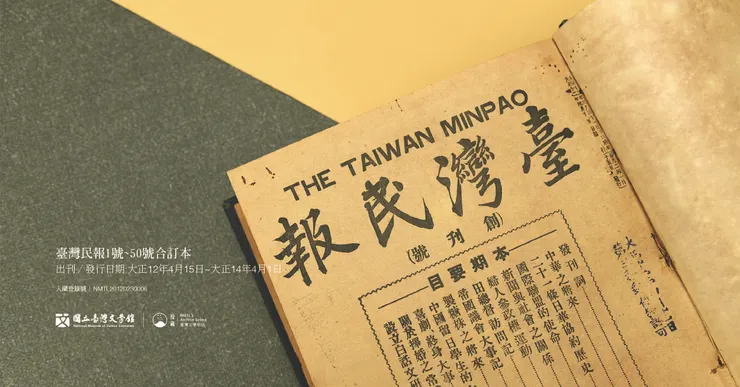 THE TAIWAN MINPAO
臺灣民報
(創刊號)
本期要目
發刊詞
中華之將來
二十一條日華協約歷史
國際聯盟的使命
新聞與社會之關係
婦人參政權運動
田總督訪問記
議會大事記
製糖株之將來
中國留日學生的
喜劇終身大事
關於擇婚之常
設立白話文研
臺灣民報1號~50號合訂本
出刊/發行日期:大正12年4月15日~大正14年4月1日
入藏登錄號 / NMTL20120230006
國立臺灣文學館
National Museum of Taiwan Literature
拾藏
NMTL's Archive Series
臺灣文學物語